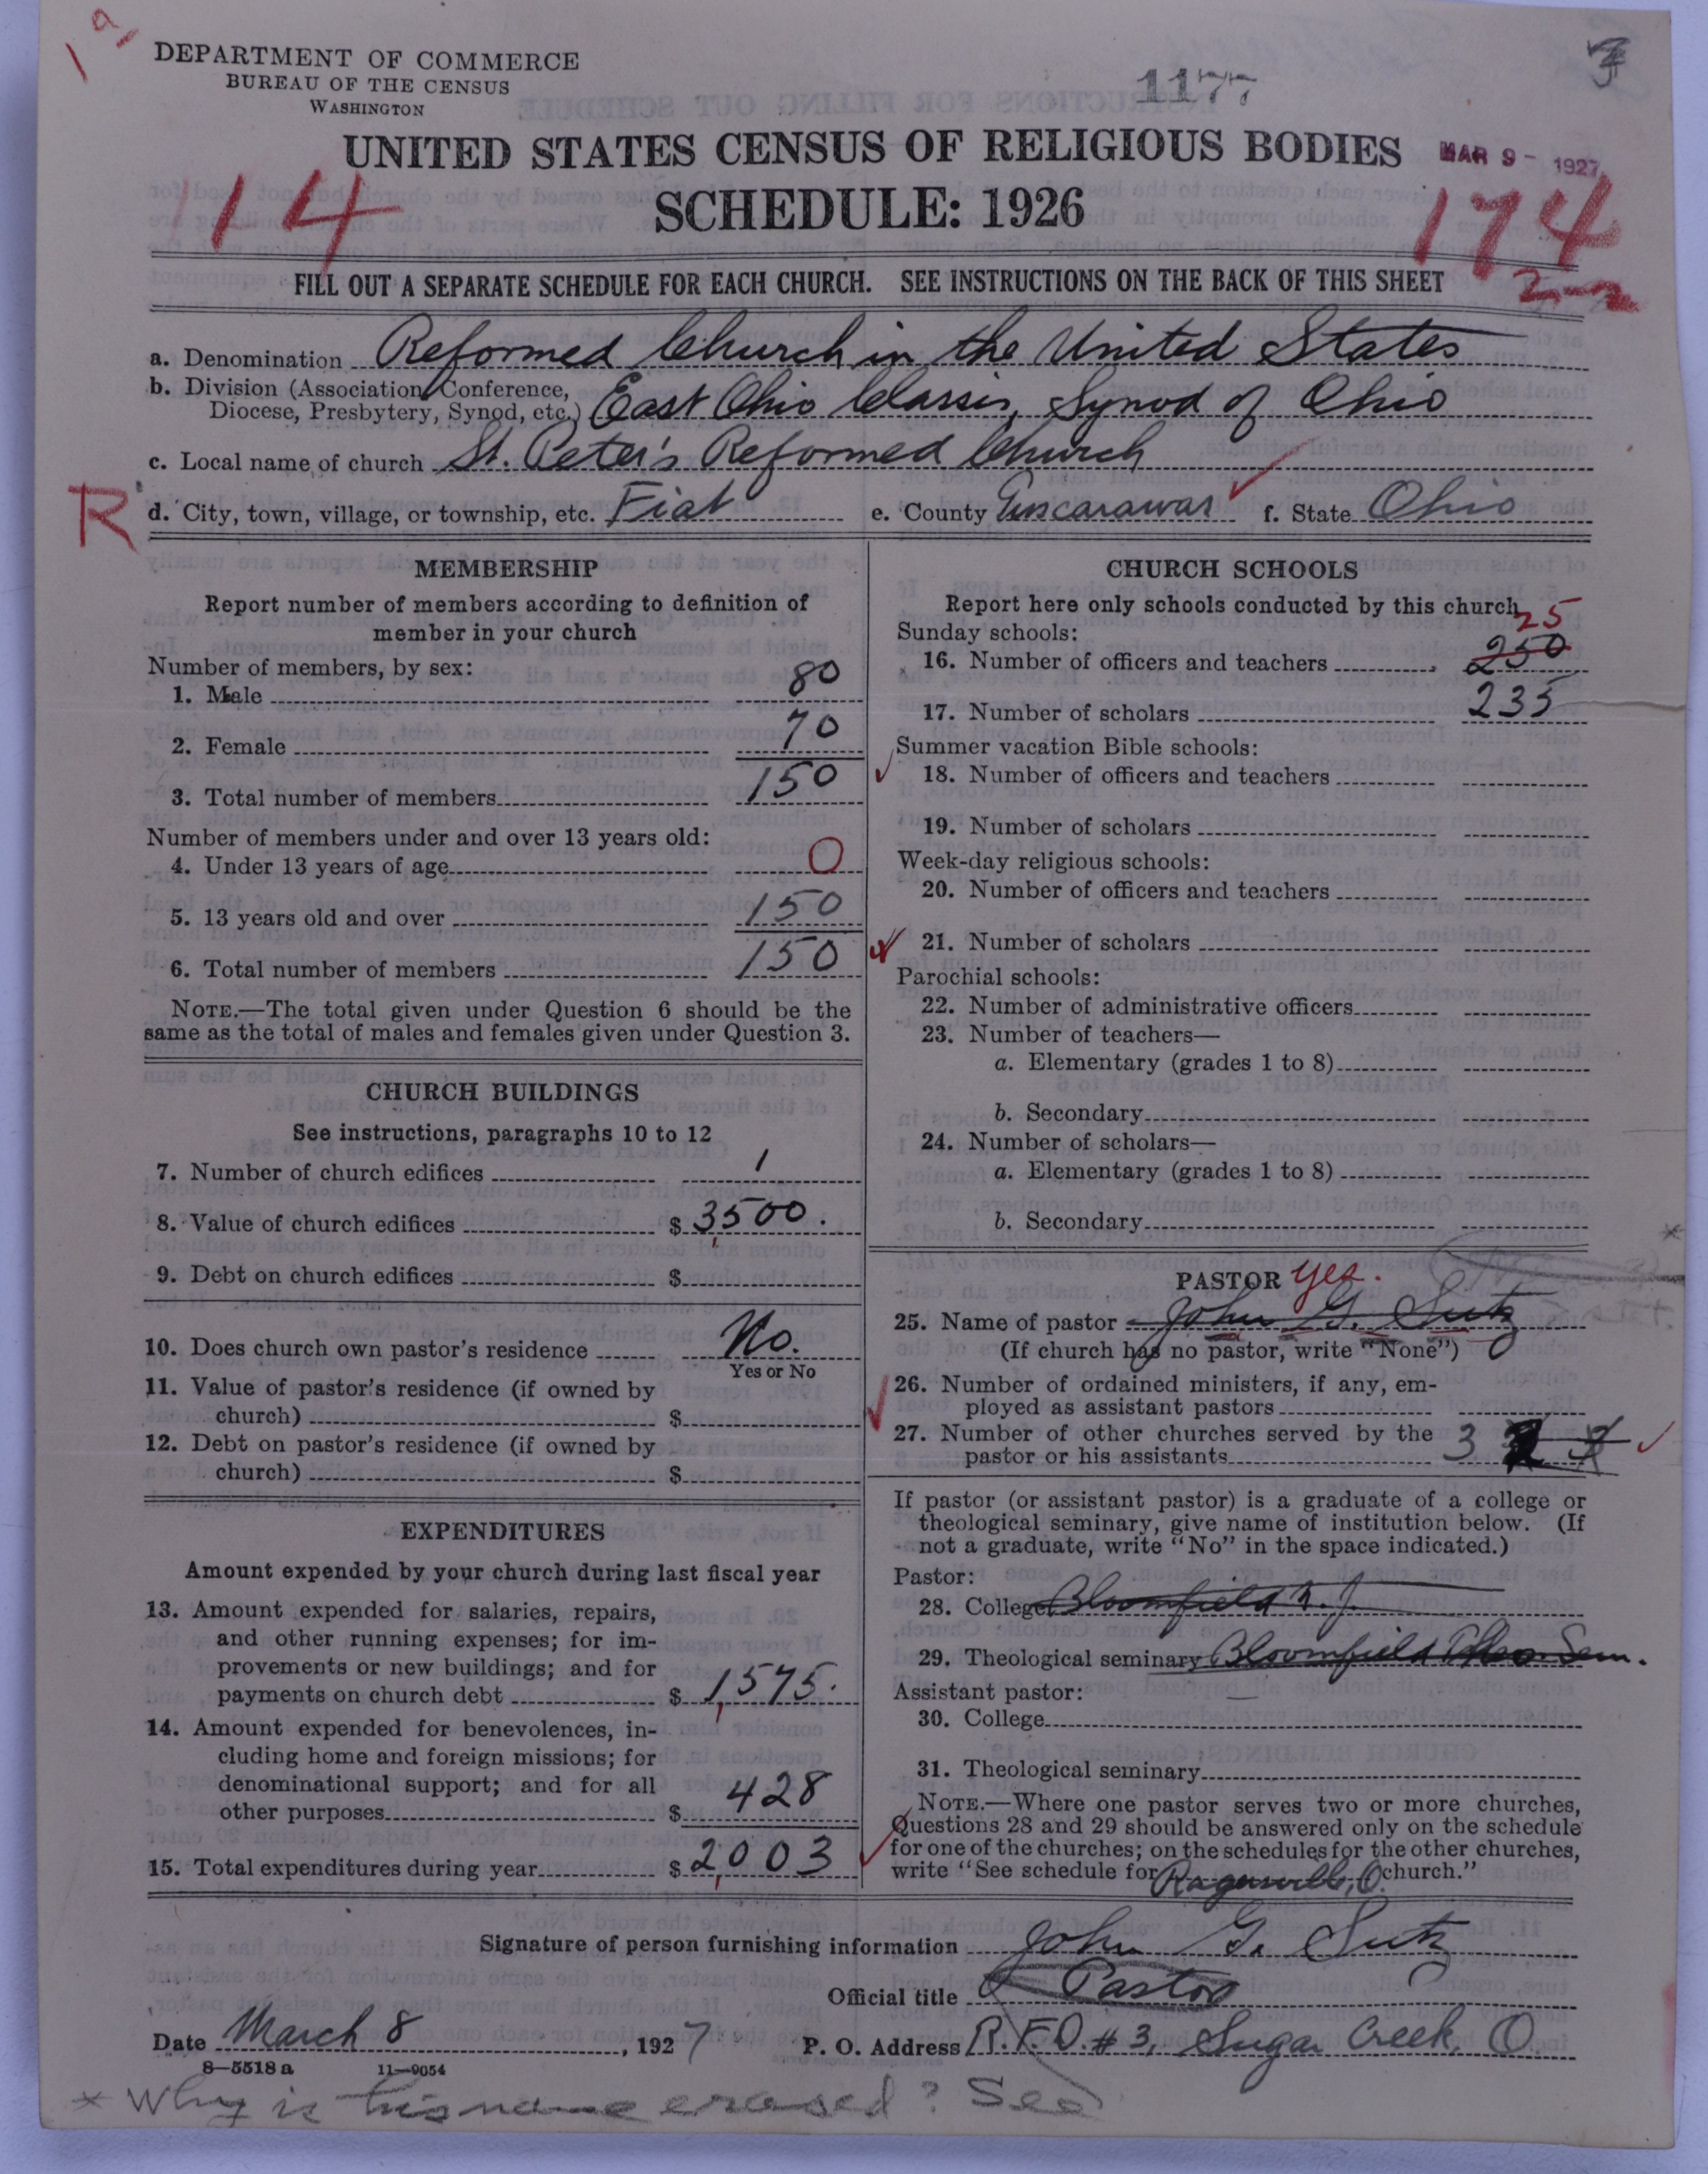 1a
DEPARTMENT OF COMMERCE
BUREAU OF THE CENSUS
WASHINGTON
1177
UNITED STATES CENSUS OF RELIGIOUS BODIES
MAR 9 - 1927
SCHEDULE: 1926
14
174
2-2
FILL OUT A SEPARATE SCHEDULE FOR EACH CHURCH. SEE INSTRUCTIONS ON THE BACK OF THIS SHEET
a. Denomination Reformed Church in the United States
b. Division (Association, Conference,
Diocese, Presbytery, Synod, etc.) East Ohio Classis, Synod of Ohio
c. Local name of church St. Peter's Reformed Church
R
d. City, town, village, or township, etc. Fiat e. County Tuscarawas f. State Ohio
MEMBERSHIP
Report number of members according to definition of
member in your church
Number of members, by sex:
1. Male 80
2. Female 70
3. Total number of members 150
Number of members under and over 13 years old:
4. Under 13 years of age 0
5. 13 years old and over 150
6. Total number of members 150
NOTE.—The total given under Question 6 should be the
same as the total of males and females given under Question 3.
CHURCH BUILDINGS
See instructions, paragraphs 10 to 12
7. Number of church edifices 1
8. Value of church edifices $ 3,500.
9. Debt on church edifices $
10. Does church own pastor's residence No.
Yes or No
11. Value of pastor's residence (if owned by
church) $
12. Debt on pastor's residence (if owned by
church) $
EXPENDITURES
Amount expended by your church during last fiscal year
13. Amount expended for salaries, repairs,
and other running expenses; for im-
provements or new buildings; and for
payments on church debt $ 1,575.
14. Amount expended for benevolences, in-
cluding home and foreign missions; for
denominational support; and for all
other purposes $ 428
15. Total expenditures during year $ 2,003
CHURCH SCHOOLS
Report here only schools conducted by this church
Sunday schools:
25
16. Number of officers and teachers 250
17. Number of scholars 235
Summer vacation Bible schools:
18. Number of officers and teachers
19. Number of scholars
Week-day religious schools:
20. Number of officers and teachers
21. Number of scholars
Parochial schools:
22. Number of administrative officers
23. Number of teachers—
a. Elementary (grades 1 to 8)
b. Secondary
24. Number of scholars—
a. Elementary (grades 1 to 8)
b. Secondary
PASTOR yes.
25. Name of pastor John G. Sutz
(If church has no pastor, write "None")
26. Number of ordained ministers, if any, em-
ployed as assistant pastors
27. Number of other churches served by the
pastor or his assistants 3
If pastor (or assistant pastor) is a graduate of a college or
theological seminary, give name of institution below. (If
not a graduate, write "No" in the space indicated.)
Pastor:
28. College Bloomfield N. J.
29. Theological seminary Bloomfield Theo. Sem.
Assistant pastor:
30. College
31. Theological seminary
NOTE.—Where one pastor serves two or more churches,
Questions 28 and 29 should be answered only on the schedule
for one of the churches; on the schedules for the other churches,
write "See schedule for Ragersville, O. church."
Signature of person furnishing information John G. Sutz
Official title Pastor
Date March 8, 1927 P. O. Address R.F.D. #3, Sugar Creek, O.
8—5518 a 11—9054
* Why is this name erased? See